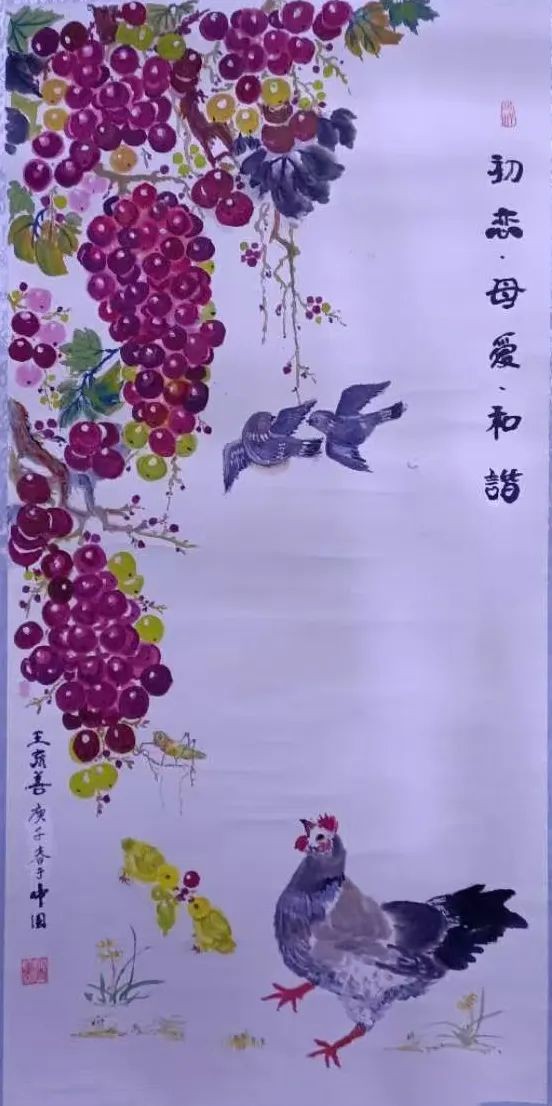 初恋·母爱、和諧
王 善 庚子春于中國